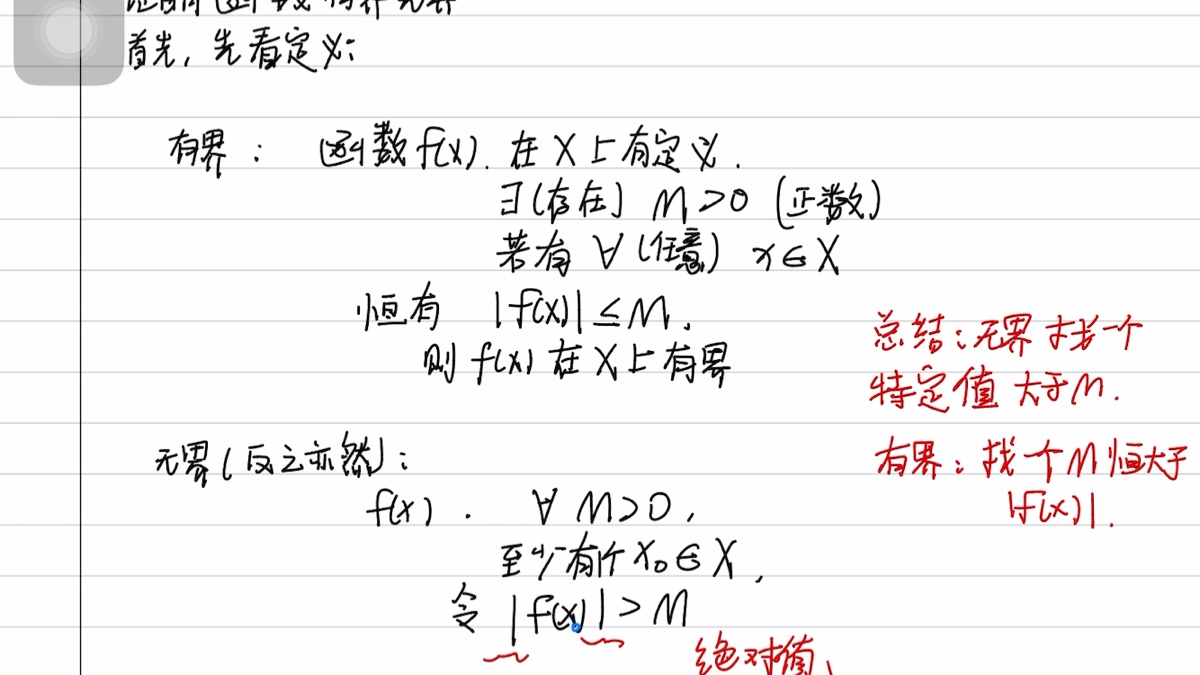 证明函数有界无界
首先，先看定义：
有界： 函数f(x). 在X上有定义.
∃(存在) M>0 (正数)
若有 ∀(任意) x∈X
恒有 |f(x)|≤M,
则 f(x) 在 X 上有界
总结：无界 找一个
特定值 大于M.
有界：找个M恒大于
|f(x)|.
无界(反之亦然)：
f(x). ∀ M>0,
至少有个x₀∈X,
令 |f(x)|>M
绝对值,